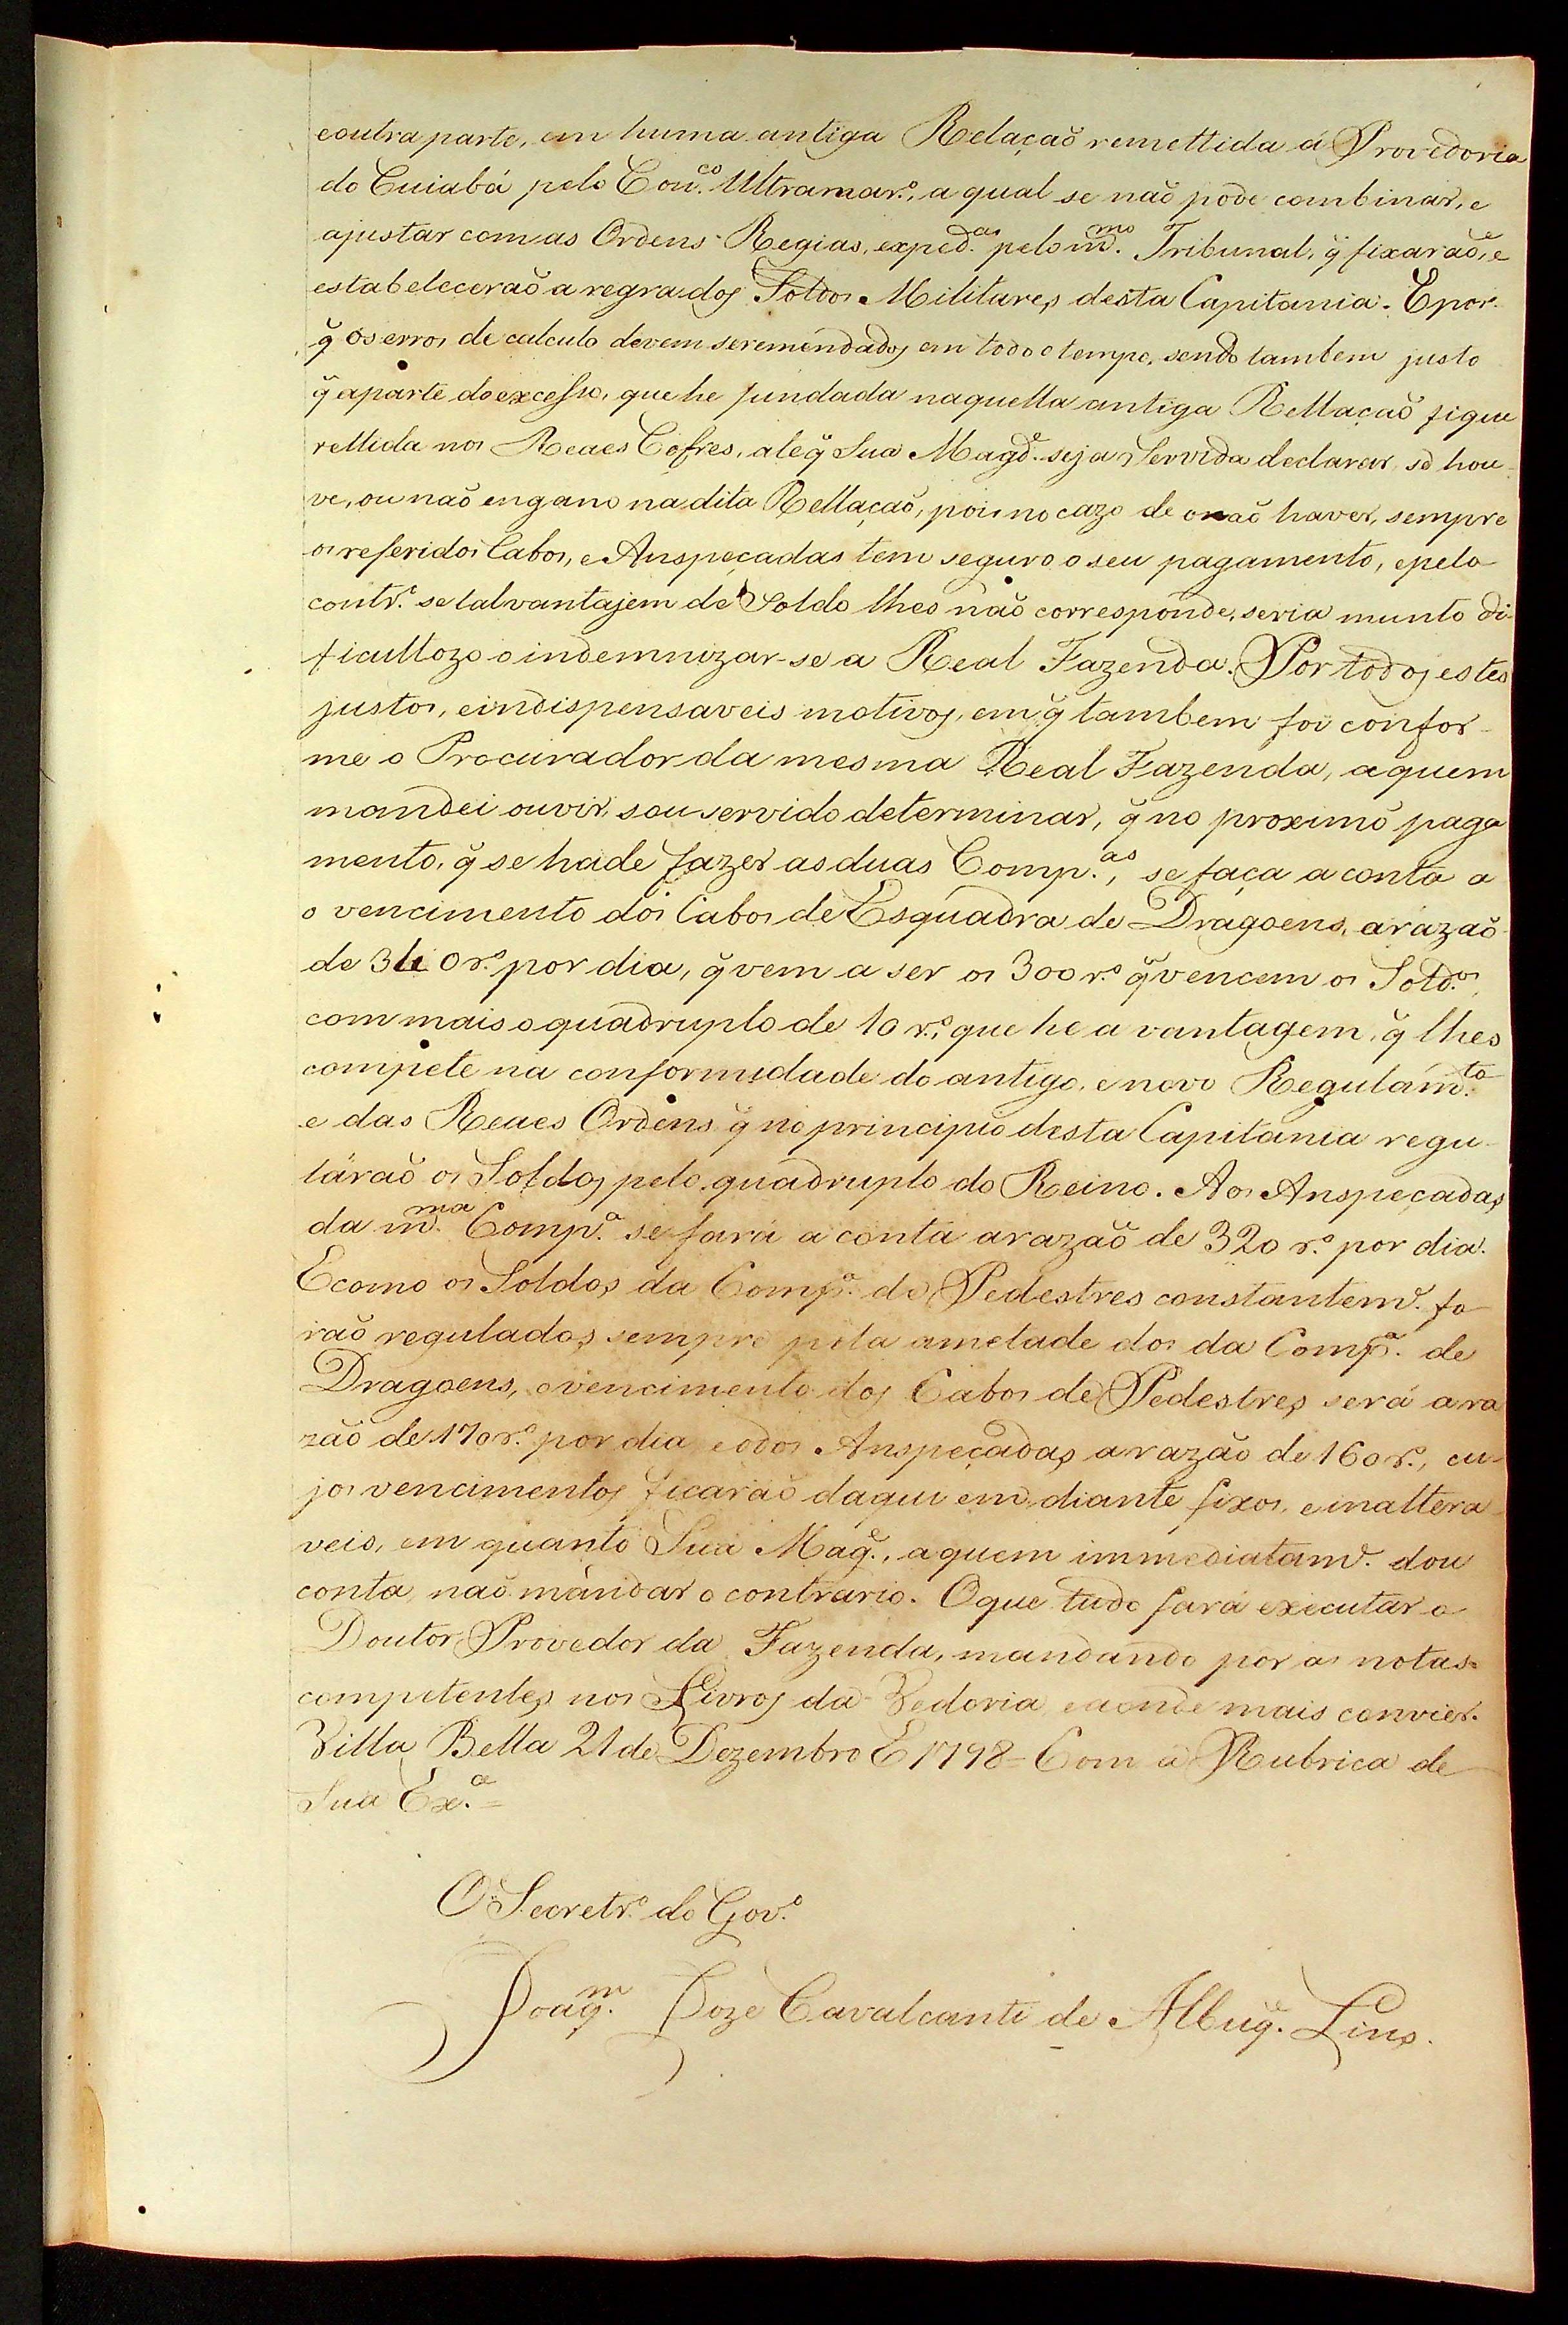 e outra parte, em huma antiga Relaçaõ remettida á Provedoria
do Cuiabá pelo Con.co Ultramar.o, a qual se naõ póde combinar, e
ajustar com as Ordens Regias, exped.as pelo m.mo Tribunal, q̃ fixaraõ, e
estabeleceraõ a regra dos Soldos Militares desta Capitania. E por-
q̃ os erros de calculo devem ser emendados em todo o tempo, sendo tambem justo
q̃ a parte do excesso, que he fundada naquella antiga Rellaçaõ fique
rettida nos Reaes Cofres, ate q̃ Sua Mag.de seja Servida declarar, se hou-
ve, ou naõ engano na dita Rellaçaõ, pois no cazo de o naõ haver, sempre
os referidos Cabos, e Anspeçadas tem seguro o seu pagamento, e pelo
contr.o se tal vantajem de Soldo lhes naõ corresponde, seria munto di-
ficultozo o indemnizar-se a Real Fazenda. Por todos estes
justos, e indispensaveis motivos, em q̃ tambem foi confor-
me o Procurador da mesma Real Fazenda, a quem
mandei ouvir, sou servido determinar, q̃ no proximo paga
mento, q̃ se hade fazer as duas Comp.as, se faça a conta a
o vencimento dos Cabos de Esquadra de Dragoens, a razaõ
de 340 r.s por dia, q̃ vem a ser os 300 r.s q̃ vencem os Sold.os,
com mais o quadruplo de 10 r.s, que he a vantagem, q̃ lhes
compete na conformidade do antigo, e novo Regulam.to
e das Reaes Ordens q̃ no principio desta Capitania regu-
láraõ os Soldos pelo quadruplo do Reino. Aos Anspeçadas
da m.ma Comp.a se fará a conta a razaõ de 320 r.s por dia.
E como os Soldos da Comp.a de Pedestres constantem.e fo-
raõ regulados sempre pela ametade dos da Comp.a de
Dragoens, o vencimento dos Cabos de Pedestres será a ra
zaõ de 170 r.s por dia, e o dos Anspeçadas a razaõ de 160 r.s, cu-
jos vencimentos ficaraõ daqui em diante fixos, e inaltera-
veis, em quanto Sua Mag.e, a quem immediatam.e dou
conta, naõ mandar o contrario. O que tudo fará executar o
Doutor Provedor da Fazenda, mandando por as notas
competentes nos Livros da Vedoria, e aonde mais convier.
Villa Bella 21 de Dezembro E 1798 = Com a Rubrica de
Sua Ex.a =
O Secretr.o do Gov.o
Joaq.m Joze Cavalcanti de Albuq.e Lins.